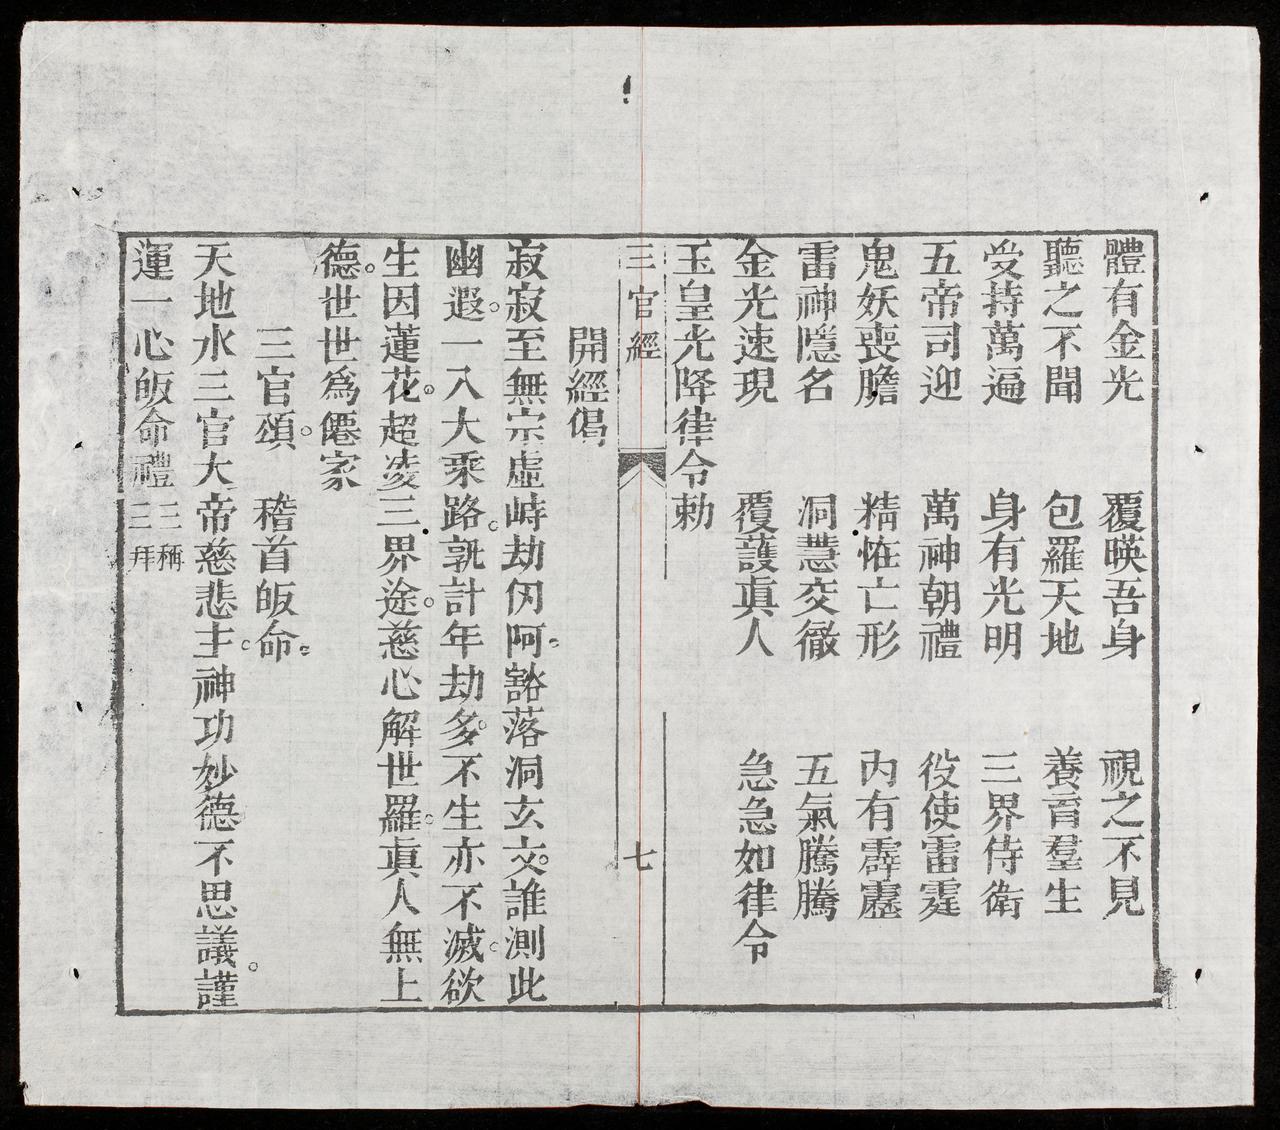 體有金光　覆暎吾身　視之不見
聽之不聞　包羅天地　養育羣生
受持萬遍　身有光明　三界侍衛
五帝司迎　萬神朝禮　役使雷霆
鬼妖喪膽　精恠亡形　内有霹靂
雷神隱名　洞慧交徹　五氣騰騰
金光速現　覆護眞人　急急如律令
玉皇光降律令勅
三官經　七
開經偈
寂寂至無宗虛峙劫仭阿。豁落洞玄文。誰測此
幽遐。一入大乘路。孰計年劫多。不生亦不滅。欲
生因蓮花。超凌三界途。慈心解世羅。眞人無上
德。世世爲僊家
三官頌。　稽首皈命。
天地水三官大帝慈悲主。神功妙德不思議。謹
運一心皈命禮三稱三拜